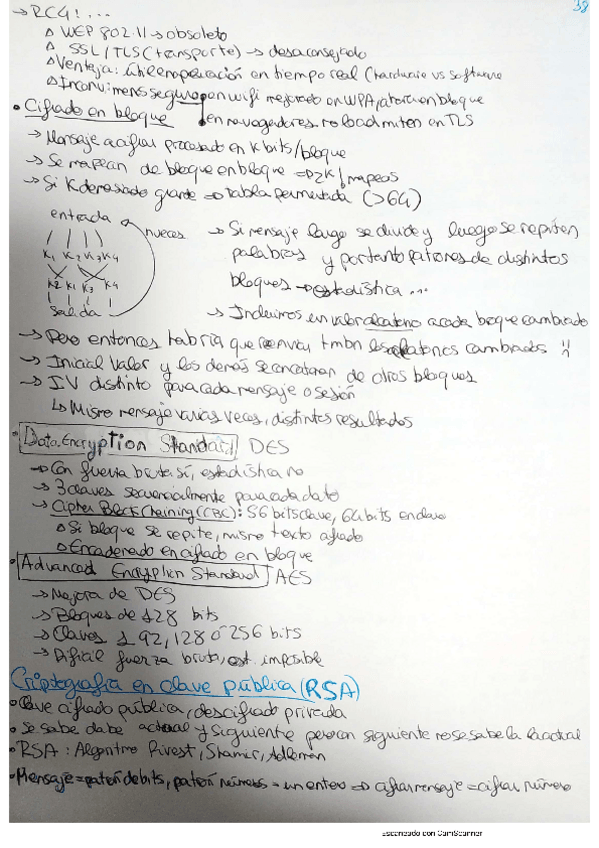 38
→ RC4!...
△ WEP 802.11 → obsoleto
△ SSL/TLS (transporte) → desaconsejado
△ Ventaja: útil en operación en tiempo real (hardware vs software
△ Inconv: menos seguro, en wifi mejorado en WPA, ahora en bloque
en navegadores no lo admiten en TLS
• Cifrado en bloque
→ Mensaje a cifrar procesado en K bits/bloque
→ Se mapean de bloque en bloque ⇒ 2K! mapeos
→ Si K demasiado grande ⇒ tabla permutada (>64)
entrada
n veces
K1 K2 K3 K4
K2 K1 K3 K4
salida
→ Si mensaje largo se divide y luego se repiten
palabras y por tanto patrones de distintos
bloques → estadística...
→ Incluimos en valor aleatorio a cada bloque cambiado
→ Pero entonces habría que reenviar tmbn los aleatorios cambiados !!
→ Inicial valor y los demás se concatenan de otros bloques
→ IV distinto para cada mensaje o sesión
↳ Mismo mensaje varias veces, distintos resultados
• Data Encryption Standard DES
→ Con fuerza bruta sí, estadística no
→ 3 claves secuencialmente para cada dato
→ Cipher Block Chaining (CBC): 56 bits clave, 64 bits en claro
△ Si bloque se repite, mismo texto cifrado
△ Encadenado en cifrado en bloque
• Advanced Encryption Standard AES
→ Mejora de DES
→ Bloques de 128 bits
→ Claves 192, 128 ó 256 bits
→ Difícil fuerza bruta, est. imposible
Criptografía en clave pública (RSA)
• Clave cifrado pública, descifrado privada
• Se sabe clave actual y siguiente pero con siguiente no se sabe la actual
• RSA: Algoritmo Rivest, Shamir, Adleman
• Mensaje = patrón de bits, patrón números = un entero ⇒ cifrar mensaje = cifrar número
Escaneado con CamScanner